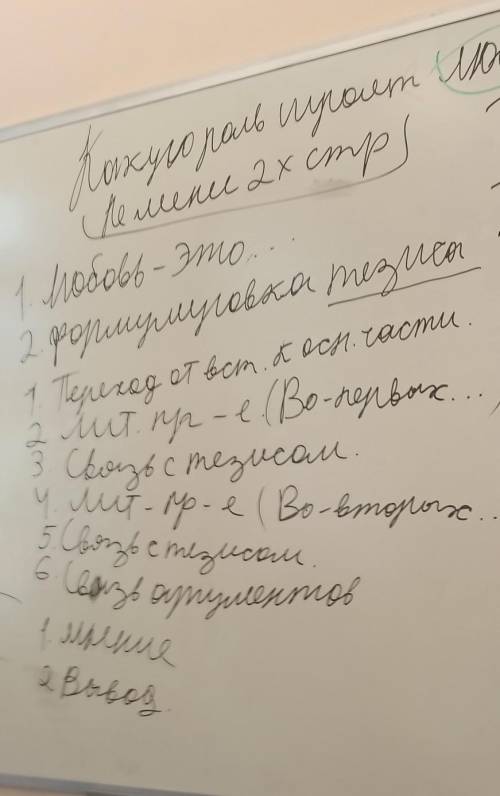 Какую роль играет
(Не мение 2х стр)
1. Любовь - это...
2. Формулировка тезиса
1. Переход от вст. к осн. части.
2 Лит. пр-е. (Во-первых...
3 Связь с тезисом.
4. Лит-пр-е (Во-вторых...
5. Связь с тезисом.
6. Связь аргументов
1. Мнение
2 Вывод.